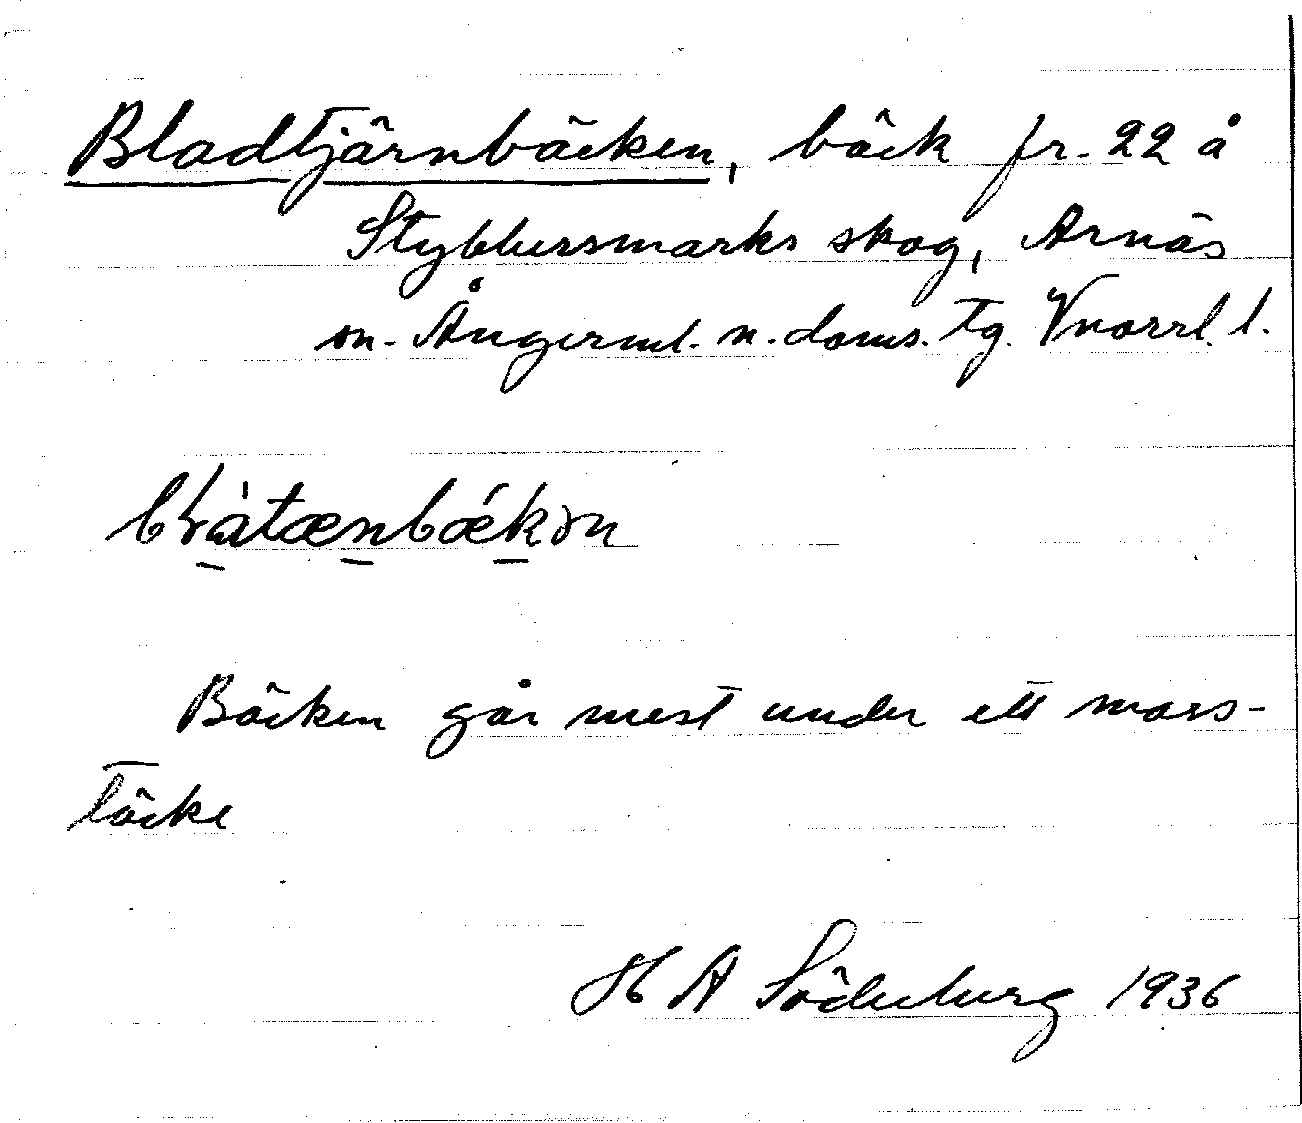 Bladtjärnbäcken, bäck fr. 22 å
Styblussmarks skog, Arnäs
sn. Ångerml. n. doms. tg. Vnorrl. l.
Bäcken går mest under ett mos-
täcke
H A Söderberg 1936